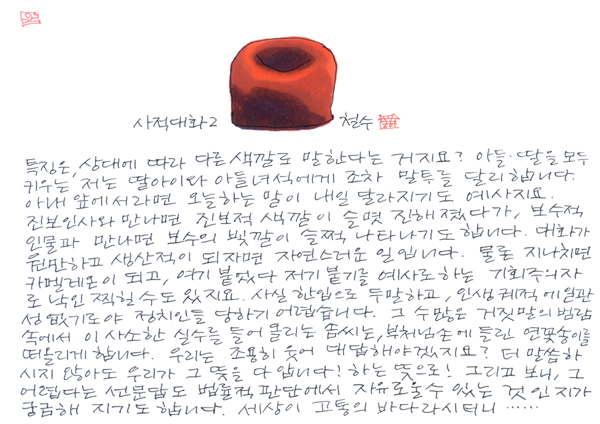 사적대화2 철수
특징은, 상대에 따라 다른 색깔로 말한다는 거지요? 아들·딸을 모두
키우는 저는 딸아이와 아들녀석에게 조차 말투를 달리합니다.
아내 앞에서라면 오늘하는 말이 내일 달라지기도 예사지요.
진보인사와 만나면 진보적 색깔이 슬몃 진해졌다가, 보수적
인물과 만나면 보수의 빛깔이 슬쩍 나타나기도합니다. 대화가
원만하고 생산적이 되자면 자연스러운 일입니다. 물론 지나치면
카멜레온이 되고, 여기 붙었다 저기 붙기를 예사로하는 기회주의자
로 낙인 찍힐 수도 있지요. 사실 한입으로 두말하고, 인생 궤적에 일관
성 없기로야 정치인들 당하기 어렵습니다. 그 수많은 거짓말의 범람
속에서 이 사소한 실수를 들어 올리는 솜씨는, 부처님손에 들린 연꽃송이를
떠올리게 합니다. 우리는 조용히 웃어 대답해야겠지요? 더 말씀하
시지 않아도 우리가 그 뜻을 다 압니다! 하는 뜻으로! 그리고 보니, 그
어렵다는 선문답도 법률적 판단에서 자유로울 수 있는 것 인지가
궁금해 지기도 합니다. 세상이 고통의 바다라시더니 ......